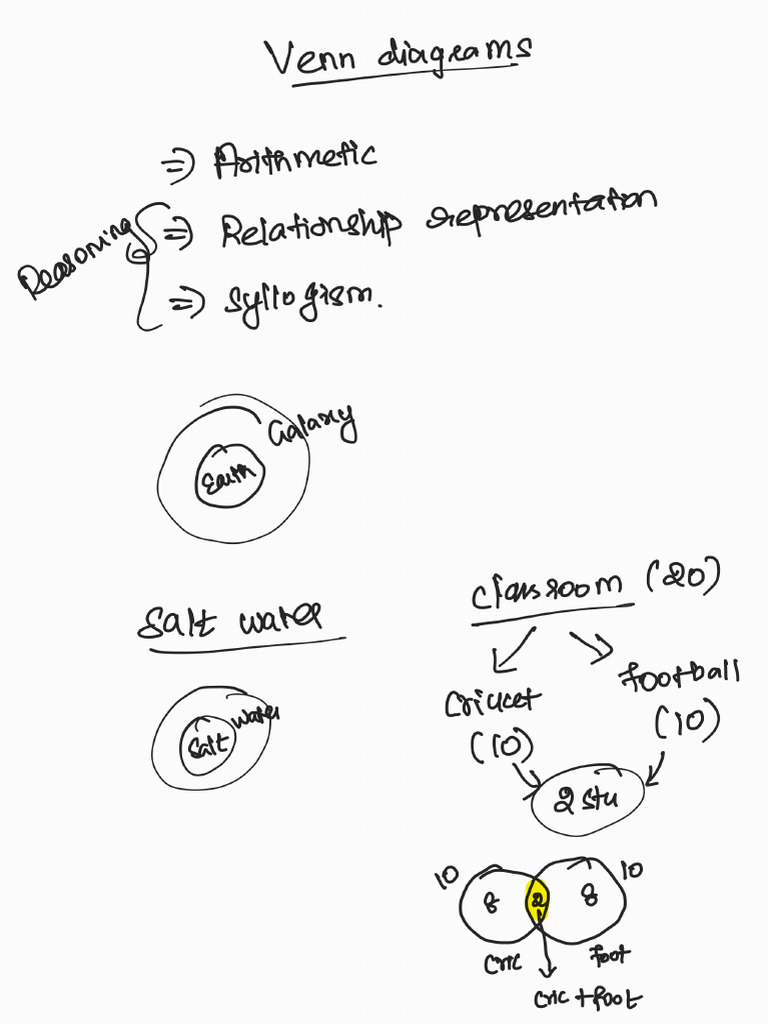 Venn diagrams
⇒ Arithmetic
Reasoning
⇒ Relationship representation
⇒ Syllogism.
Galaxy
Earth
Salt water
water
Salt
Classroom (20)
Cricket
(10)
Football
(10)
2 stu
10
10
8
2
8
Cric
Foot
Cric + foot